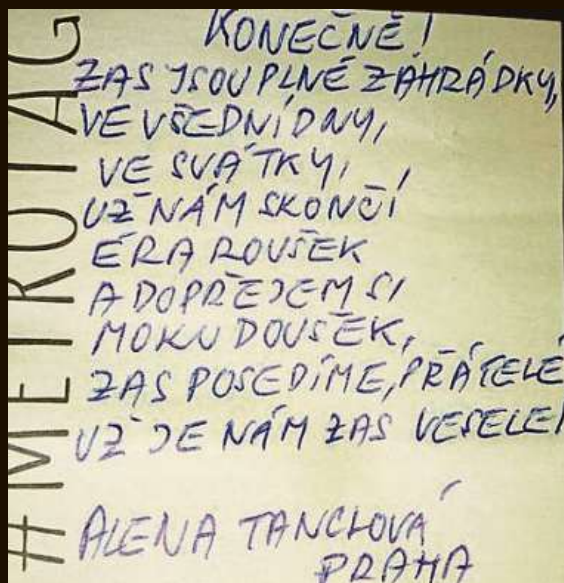 #METROTAG
KONEČNĚ!
ZAS JSOU PLNÉ ZAHRÁDKY,
VE VŠEDNÍ DNY,
VE SVÁTKY,
UŽ NÁM SKONČÍ
ÉRA ROUŠEK
A DOPŘEJEM SI
MOKU DOUŠEK,
ZAS POSEDÍME, PŘÁTELÉ
UŽ JE NÁM ZAS VESELE!
ALENA TANCLOVÁ
PRAHA